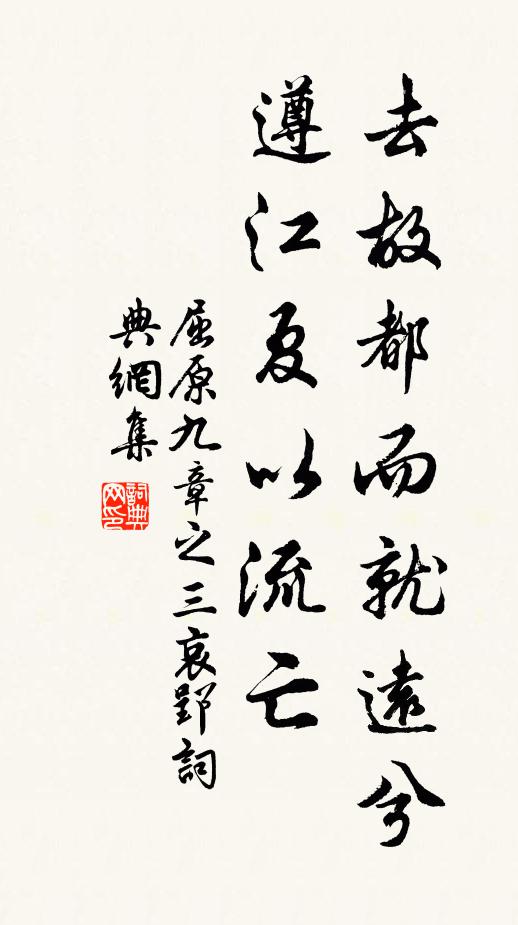 去故都而就遠兮
遵江夏以流亡
屈原九章之三哀郢詞
典網集
詞典
网印